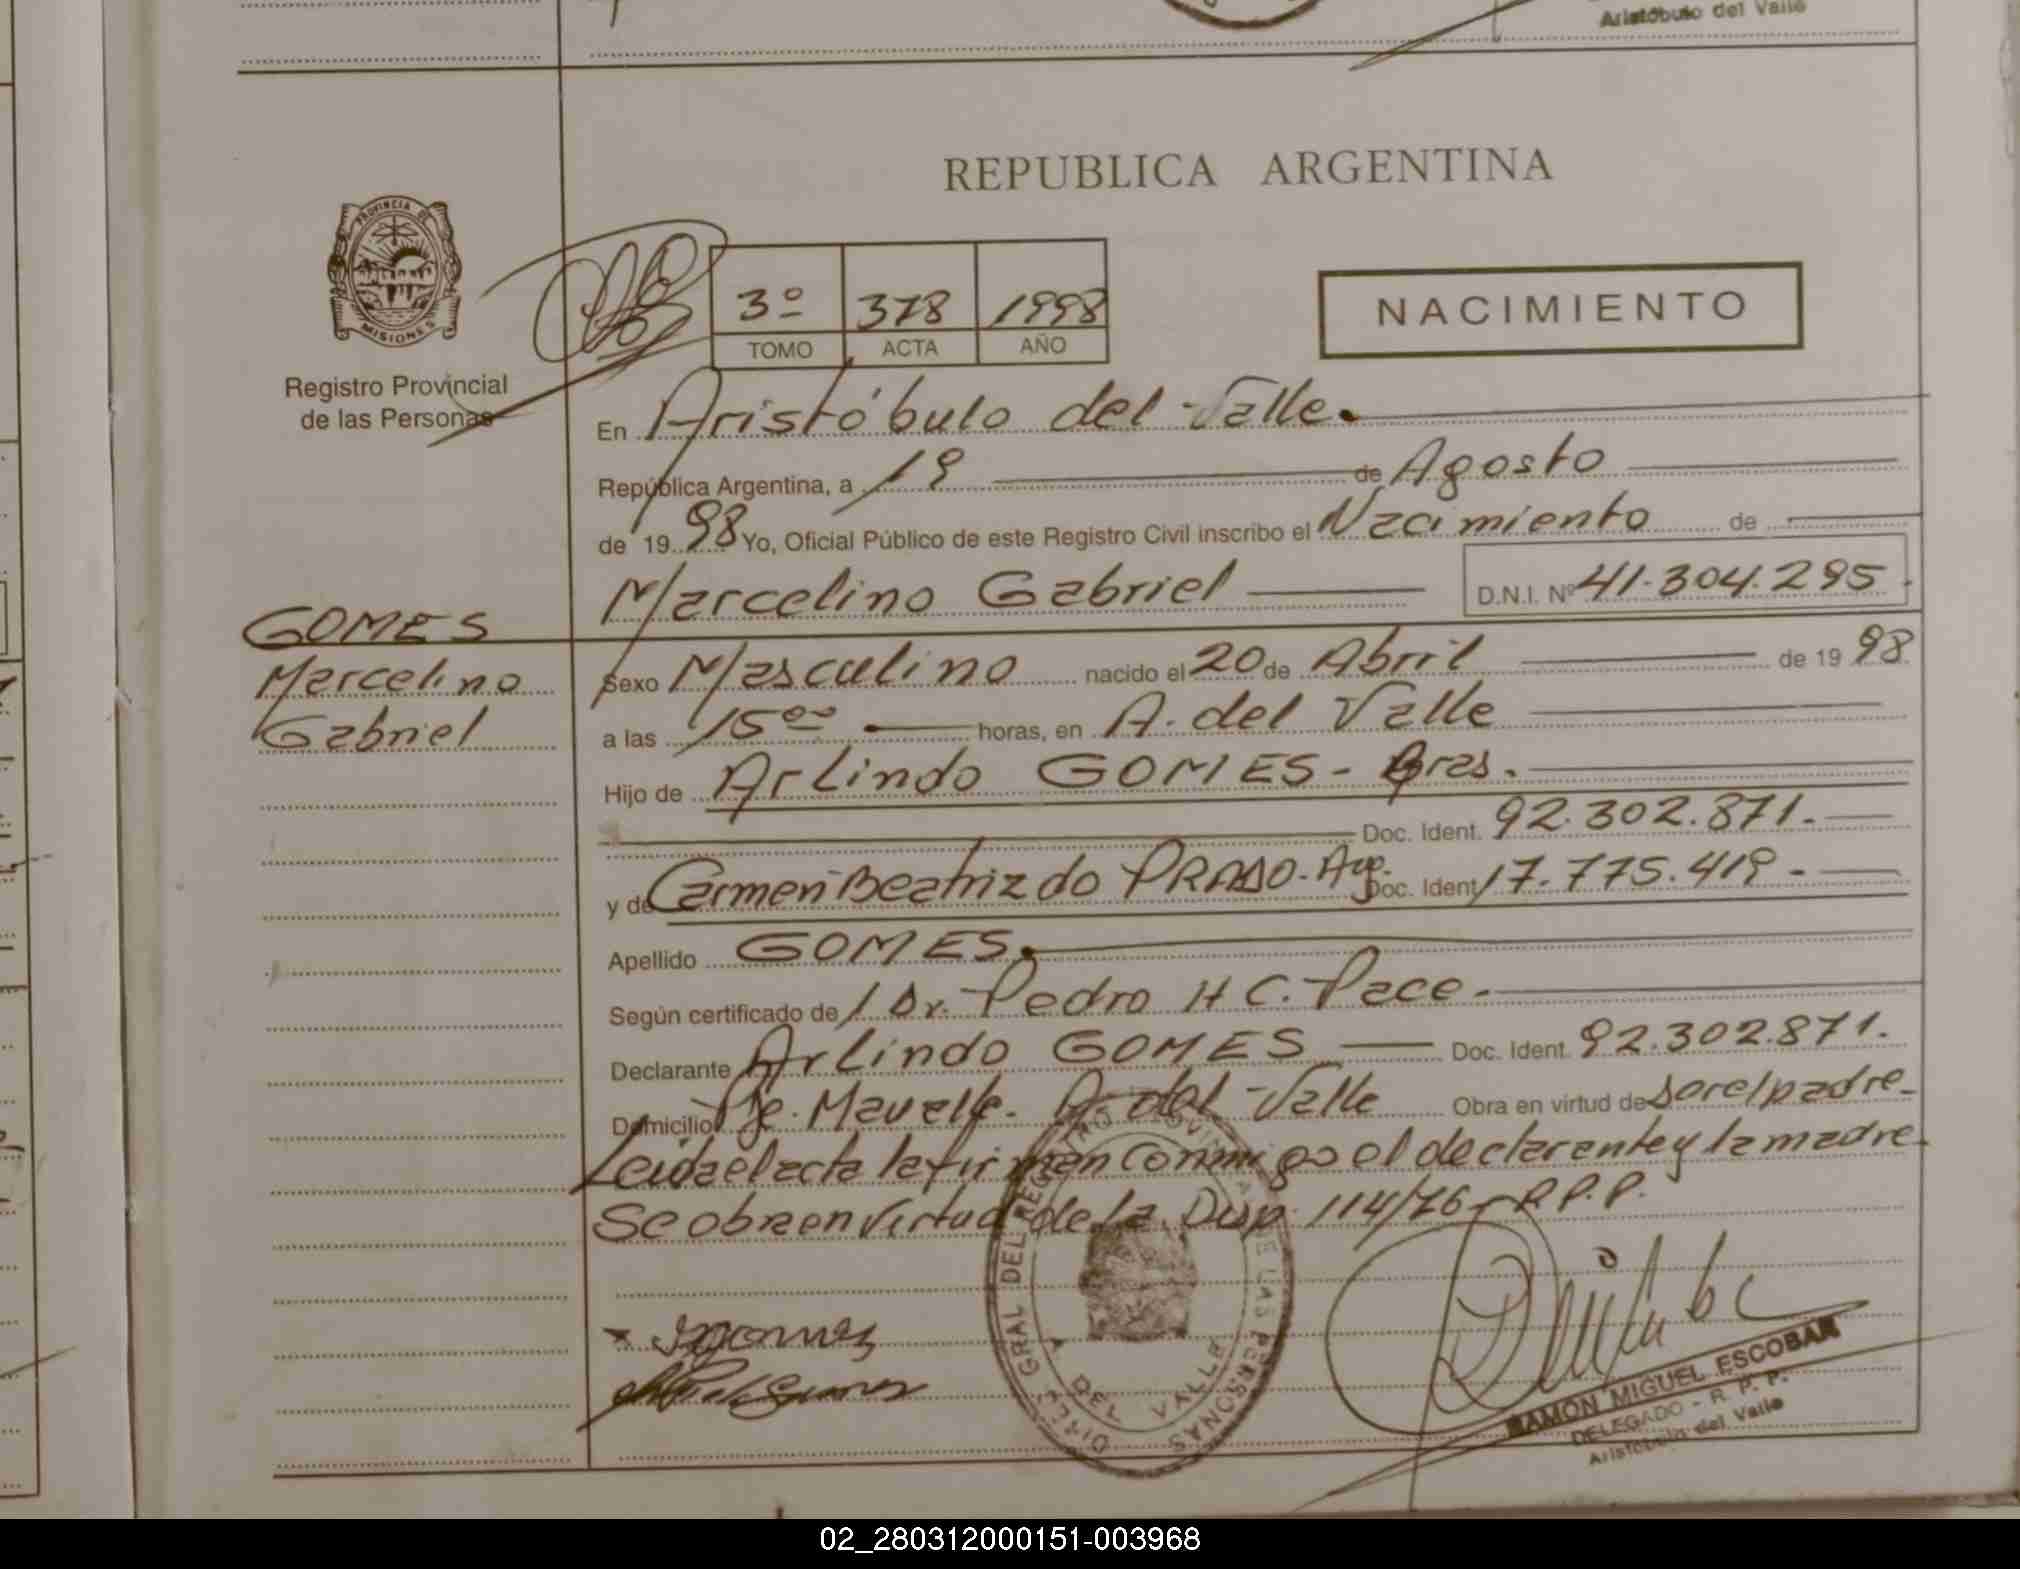 Aristóbulo del Valle
REPUBLICA ARGENTINA
PROVINCIA DE
MISIONES
Registro Provincial
de las Personas
3º 378 1998
TOMO ACTA AÑO
NACIMIENTO
En Aristóbulo del Valle.
República Argentina, a 19 de Agosto
de 1998 Yo, Oficial Público de este Registro Civil inscribo el Nacimiento de
Marcelino Gabriel D.N.I. Nº 41.304.295.
GOMES
Marcelino
Gabriel
Sexo Masculino nacido el 20 de Abril de 1998
a las 15ºº horas, en A. del Valle
Hijo de Arlindo GOMES - Bras.
Doc. Ident. 92.302.871.-
y de Carmen Beatriz do PRADO. Arg. Doc. Ident 17.775.419.-
Apellido GOMES.
Según certificado de l Dr. Pedro H C. Pace.
Declarante Arlindo GOMES Doc. Ident. 92.302.871.
Domicilio Pje. Mavalle. A. del Valle Obra en virtud de ser el padre-
Leida el acta la firman conmigo el declarante y la madre.
Se obra en virtud de la Disp. 114/76 - R.P.P.
DIREC. GRAL DEL REGISTRO PROVINCIAL DE LAS PERSONAS
A. DEL VALLE
RAMON MIGUEL ESCOBAR
DELEGADO - R. P. P.
Aristóbulo del Valle
02_280312000151-003968